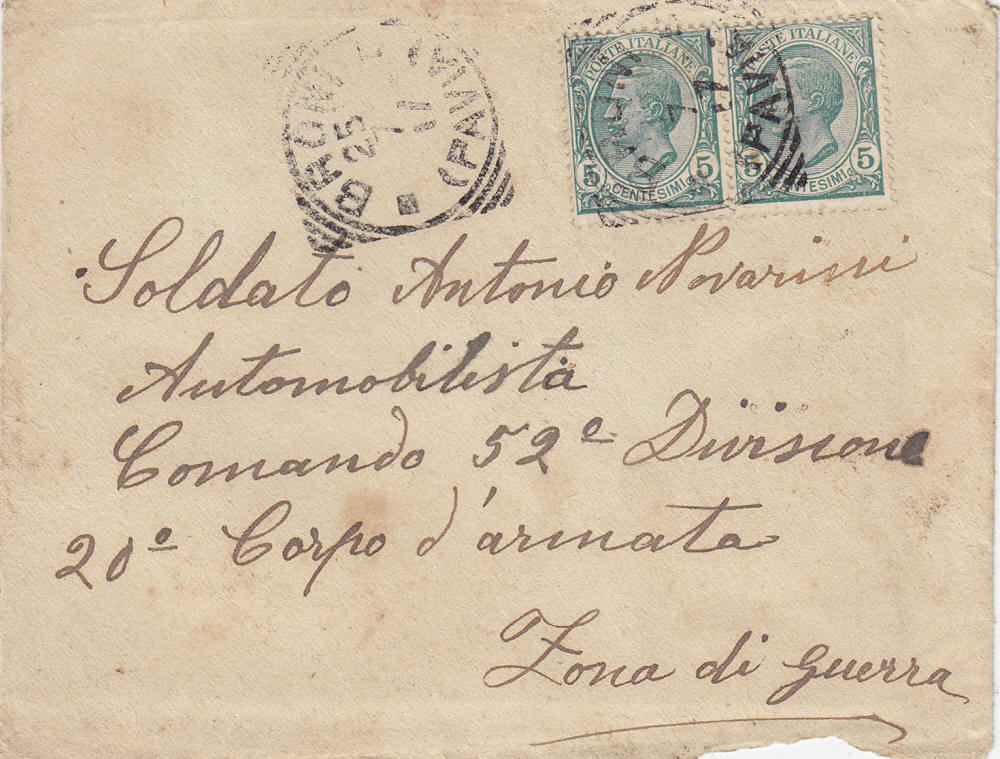 BRONI
25
7
17
(PAVIA)
POSTE ITALIANE
5 5
CENTESIMI
POSTE ITALIANE
5 5
CENTESIMI
(PAVIA
Soldato Antonio Novarini
Automobilista
Comando 52e Divisione
20o Corpo d'armata
Zona di guerra